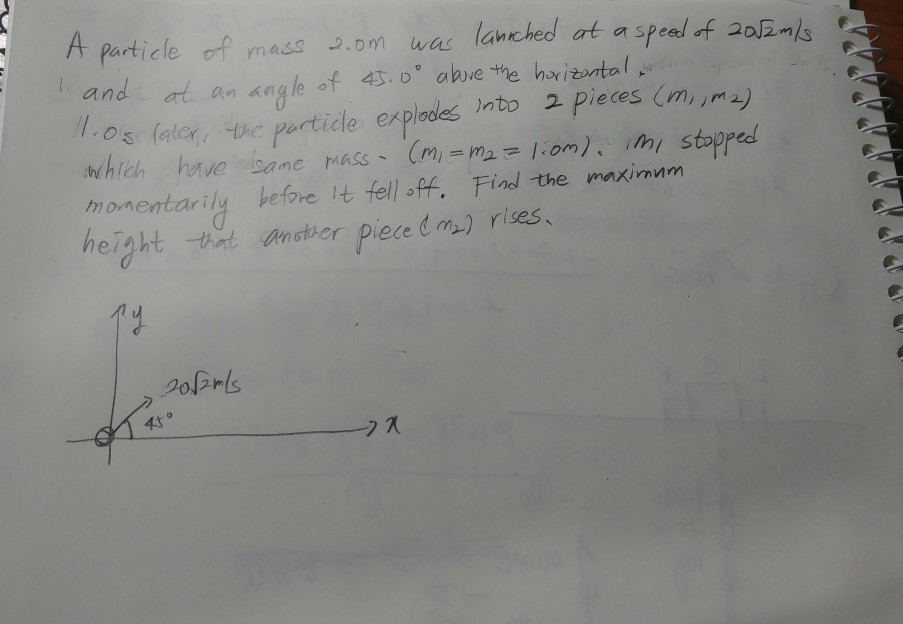 A particle of mass 2.0m was launched at a speed of 20√2m/s
and at an angle of 45.0° above the horizontal.
1.0s later, the particle explodes into 2 pieces (m₁, m₂)
which have same mass. (m₁ = m₂ = 1.0m). m₁ stopped
momentarily before it fell off. Find the maximum
height that another piece (m₂) rises.
y
20√2m/s
45°
x